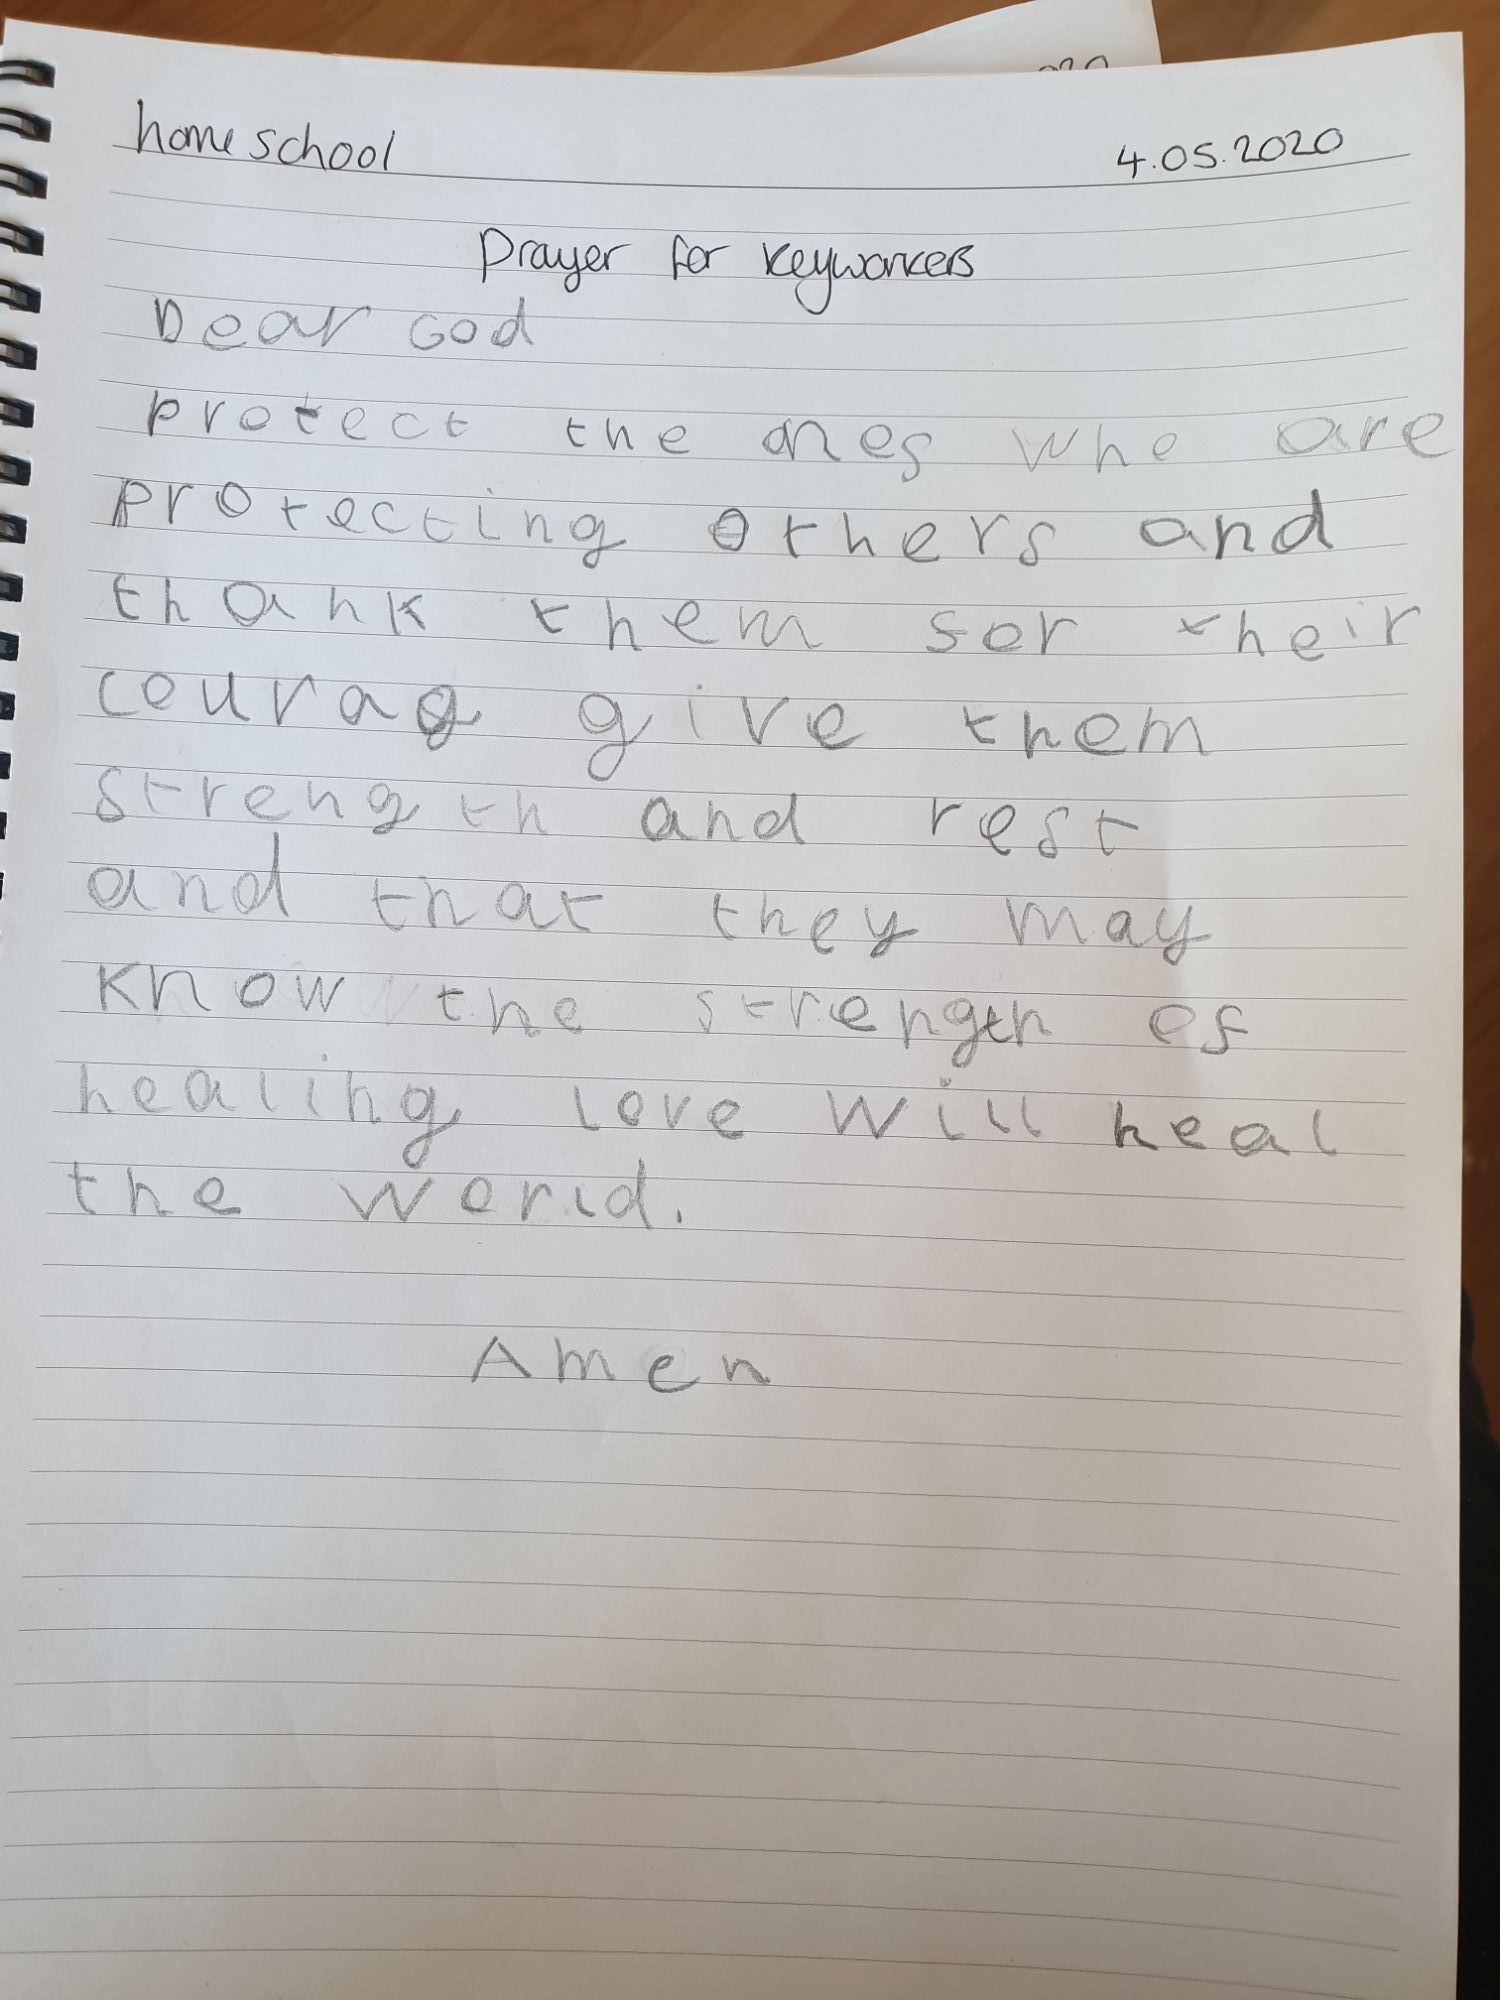 home school 4.05.2020
Prayer for Keyworkers
Dear God
protect the ones who are
protecting others and
thank them for their
courag give them
strength and rest
and that they may
know the strength of
healing love will heal
the world.
Amen